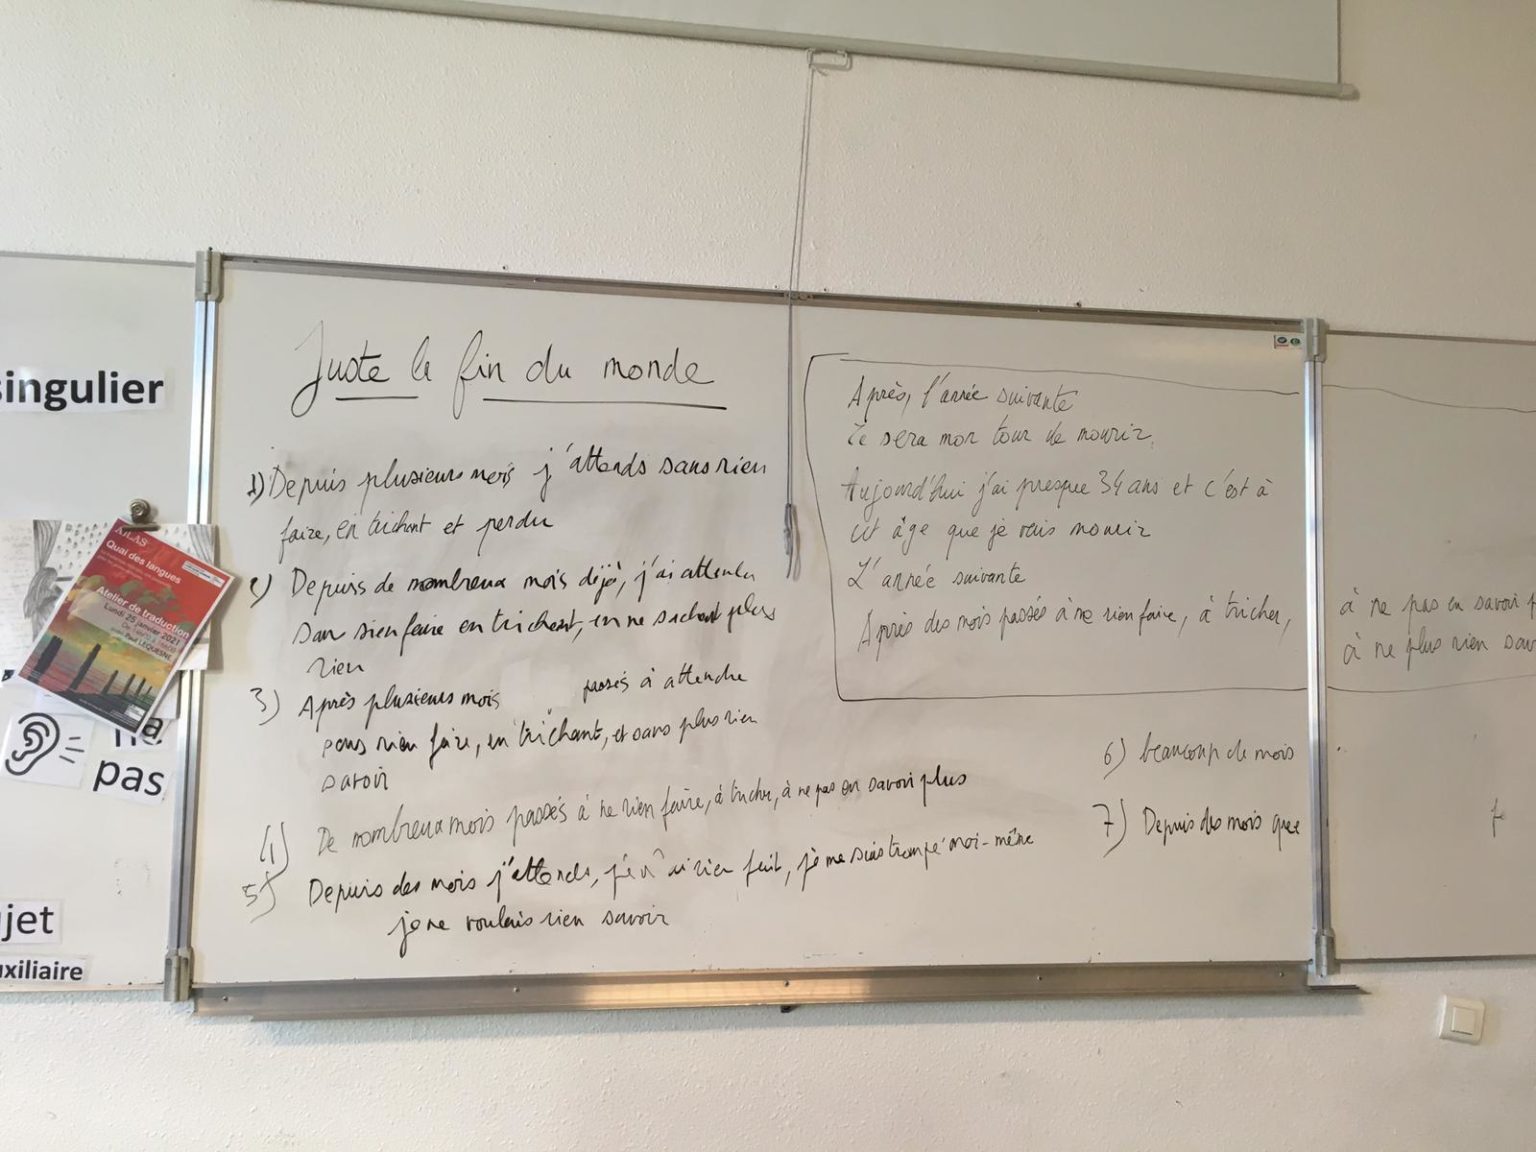 singulier
AJLAS
Quai des langues
Atelier de traduction
Lundi 25 janvier 2021
Paul LEQUESNE
ne
pas
jet
uxiliaire
Juste la fin du monde
1) Depuis plusieurs mois j'attends sans rien
faire, en trichant et perdu
2) Depuis de nombreux mois déjà, j'ai attendu
sans rien faire en trichant, en ne sachant plus
rien
3) Après plusieurs mois passés à attendre
sans rien faire, en trichant, et sans plus rien
savoir
4) De nombreux mois passés à ne rien faire, à tricher, à ne pas en savoir plus
5) Depuis des mois j'attends, je n'ai rien fait, je me suis trompé moi-même
je ne voulais rien savoir
Après, l'année suivante
Ce sera mon tour de mourir.
Aujourd'hui j'ai presque 34 ans et c'est à
cet âge que je vais mourir
L'année suivante
Après des mois passés à ne rien faire, à tricher,
à ne pas en savoir p
à ne plus rien sav
6) beaucoup de mois
7) Depuis des mois que